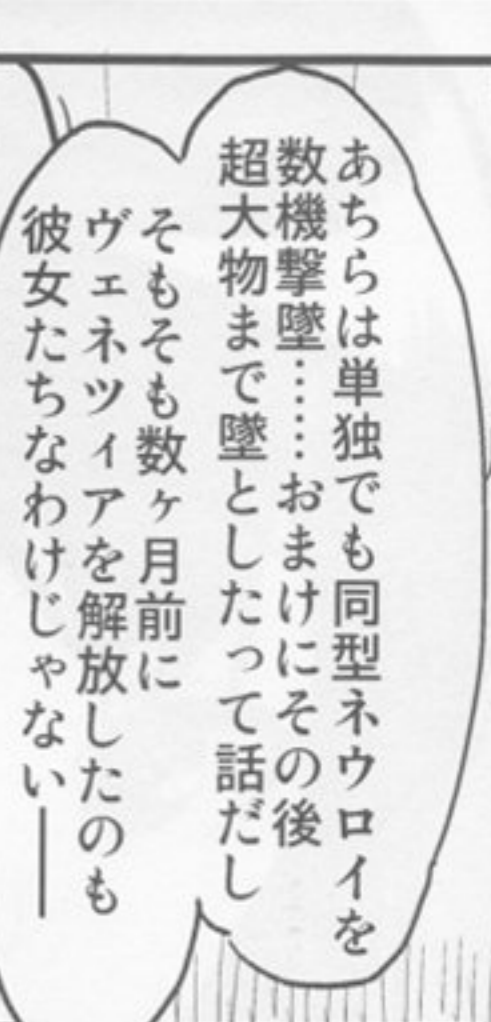 あちらは単独でも同型ネウロイを
数機撃墜……おまけにその後
超大物まで墜としたって話だし
そもそも数ヶ月前に
ヴェネツィアを解放したのも
彼女たちなわけじゃない――